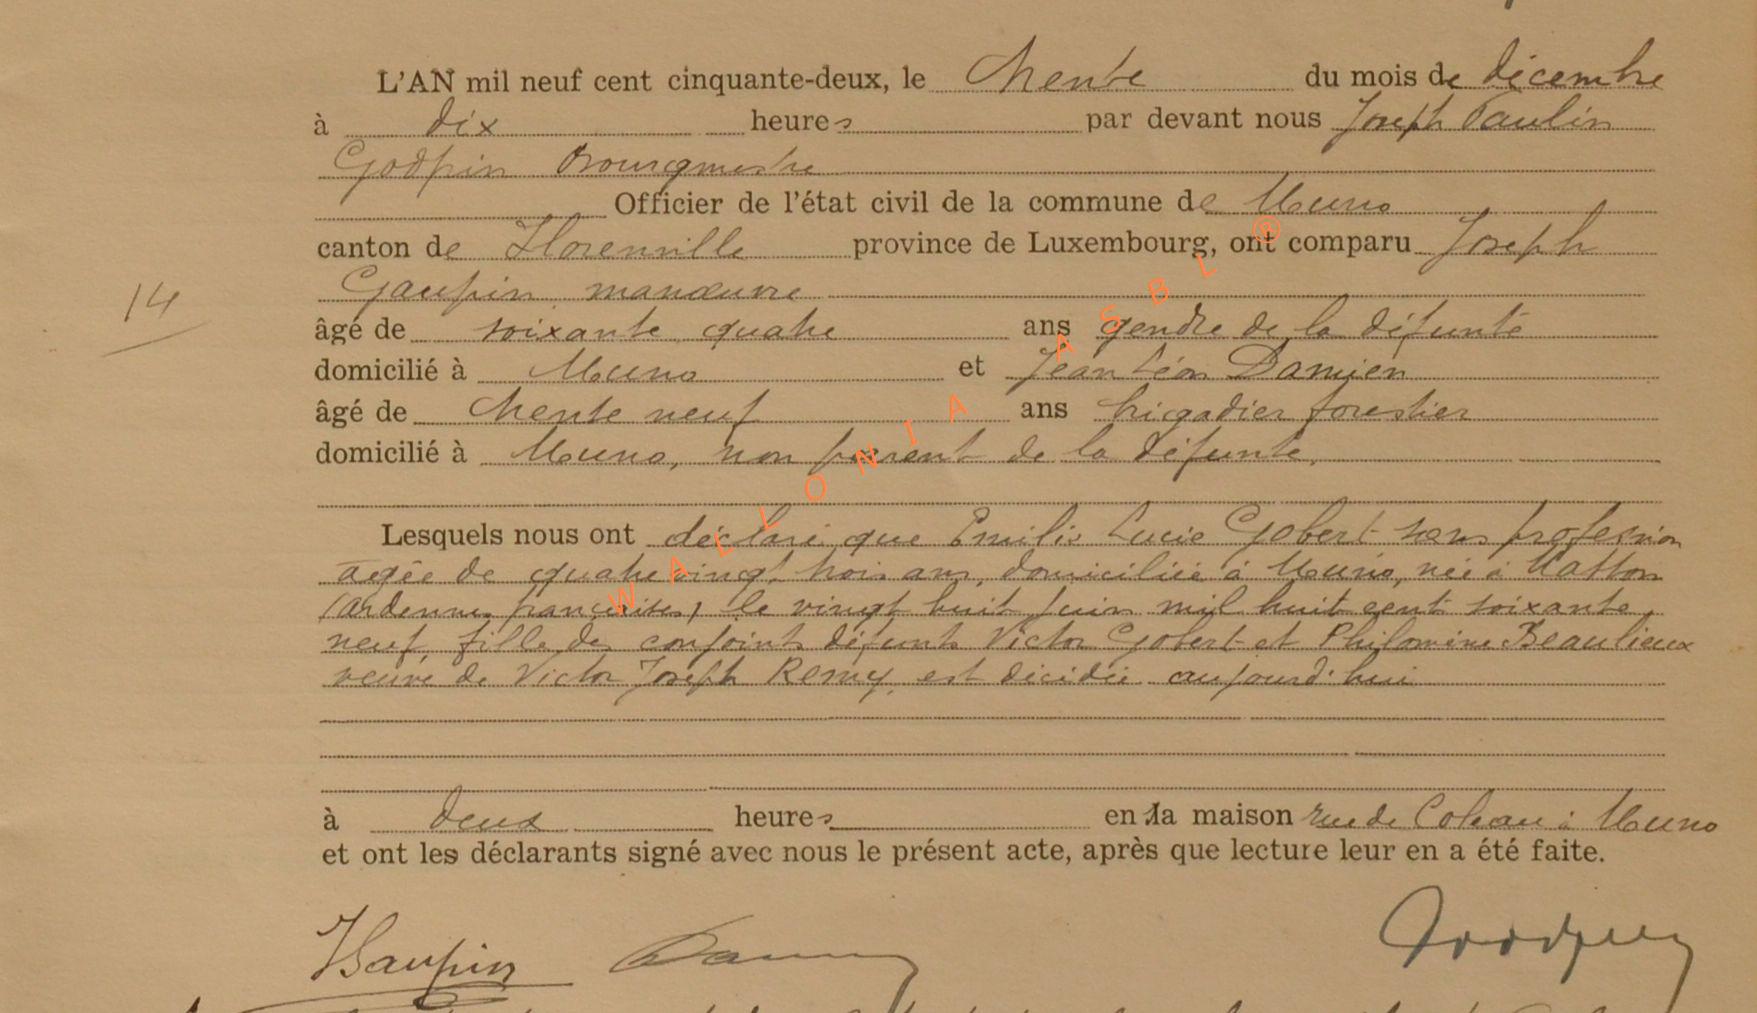 L'AN mil neuf cent cinquante-deux, le trente du mois de décembre
à dix heures par devant nous Joseph Paulin
Godfrin Bourgmestre
Officier de l'état civil de la commune de Muno
canton de Florenville province de Luxembourg, ont comparu Joseph
Gaupin, manœuvre
14
âgé de soixante quatre ans gendre de la défunte
domicilié à Muno et Jean Léon Damien
âgé de trente neuf ans brigadier forestier
domicilié à Muno, non parent de la défunte,
Lesquels nous ont déclaré que Emilie Lucie Gobert sans profession
agée de quatre vingt trois ans, domiciliée à Muno, née à Matton
(Ardennes françaises) le vingt huit juin mil huit cent soixante
neuf, fille des conjoints défunts Victor Gobert et Philomène Beaulieux
veuve de Victor Joseph Remy, est décédée aujourd'hui
à deux heures en la maison rue de à Muno
et ont les déclarants signé avec nous le présent acte, après que lecture leur en a été faite.
JGaupin
WALLONIA ASBL ®